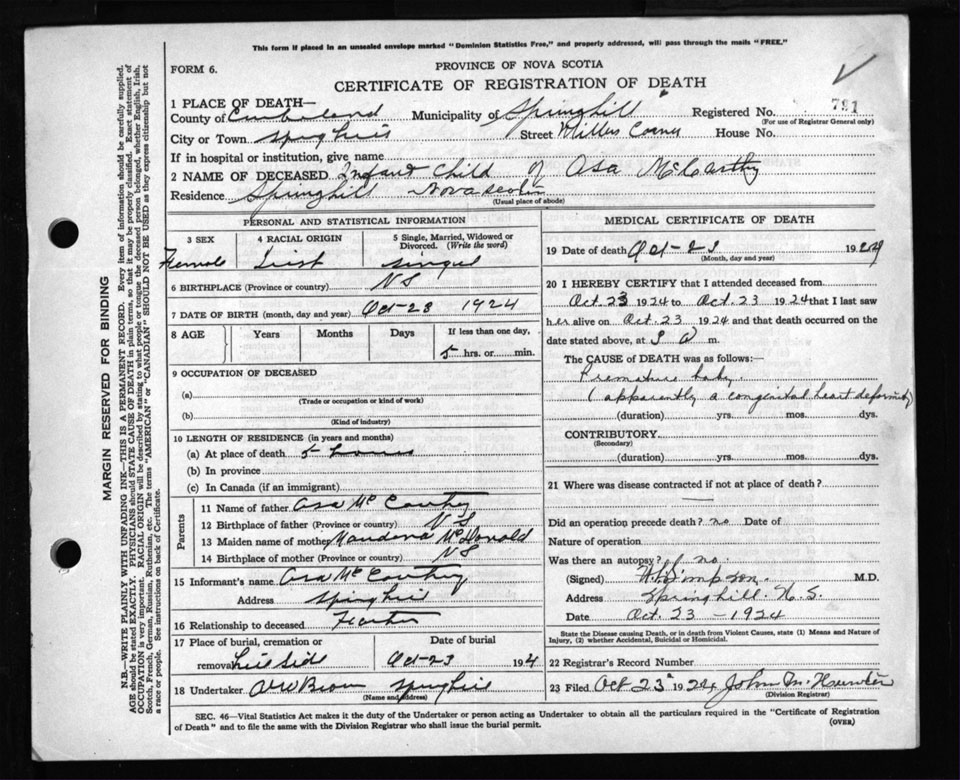 This form if placed in an unsealed envelope marked "Dominion Statistics Free," and properly addressed, will pass through the mails "FREE."
FORM 6.
PROVINCE OF NOVA SCOTIA
CERTIFICATE OF REGISTRATION OF DEATH
1 PLACE OF DEATH—
County of Cumberland Municipality of Springhill Registered No. 791
(For use of Registrar General only)
City or Town Springhill Street Millers Corner House No.
If in hospital or institution, give name
2 NAME OF DECEASED Infant Child of Asa McCarthy
Residence Springhill Nova Scotia
(Usual place of abode)
PERSONAL AND STATISTICAL INFORMATION
3 SEX
4 RACIAL ORIGIN
5 Single, Married, Widowed or Divorced. (Write the word)
Female Irish single
6 BIRTHPLACE (Province or country) NS
7 DATE OF BIRTH (month, day and year) Oct-23 1924
8 AGE Years Months Days If less than one day,
5 hrs. or min.
9 OCCUPATION OF DECEASED
(a)
(Trade or occupation or kind of work)
(b)
(Kind of industry)
10 LENGTH OF RESIDENCE (in years and months)
(a) At place of death 5 hours
(b) In province
(c) In Canada (if an immigrant)
Parents
11 Name of father Asa McCarthy
12 Birthplace of father (Province or country) NS
13 Maiden name of mother McDonald
14 Birthplace of mother (Province or country) NS
15 Informant's name Asa McCarthy
Address Springhill
16 Relationship to deceased Father
17 Place of burial, cremation or removal Hillside
Date of burial
Oct-23 1924
18 Undertaker Brown Springhill
(Name and address)
MEDICAL CERTIFICATE OF DEATH
19 Date of death Oct-23 1924
(Month, day and year)
20 I HEREBY CERTIFY that I attended deceased from
Oct. 23 1924 to Oct. 23 1924 that I last saw
her alive on Oct. 23 1924 and that death occurred on the
date stated above, at m.
The CAUSE OF DEATH was as follows:
Premature baby.
(apparently a congenital heart deformity)
(duration) yrs. mos. dys.
CONTRIBUTORY
(Secondary)
(duration) yrs. mos. dys.
21 Where was disease contracted if not at place of death?
Did an operation precede death? no Date of
Nature of operation
Was there an autopsy? no
(Signed) Simpson. M.D.
Address Springhill. N.S.
Date Oct. 23-1924
State the Disease causing Death, or in death from Violent Causes, state (1) Means and Nature of
Injury, (2) whether Accidental, Suicidal or Homicidal.
22 Registrar's Record Number
23 Filed Oct 23 1924 John M. Hunter
(Division Registrar)
SEC. 46—Vital Statistics Act makes it the duty of the Undertaker or person acting as Undertaker to obtain all the particulars required in the "Certificate of Registration
of Death" and to file the same with the Division Registrar who shall issue the burial permit. (OVER)
MARGIN RESERVED FOR BINDING
N.B.—WRITE PLAINLY WITH UNFADING INK—THIS IS A PERMANENT RECORD. Every item of information should be carefully supplied.
AGE should be stated EXACTLY. PHYSICIANS should STATE CAUSE OF DEATH in plain terms, so that it may be properly classified. Exact statement of
OCCUPATION is very important. RACIAL ORIGIN will be described by stating to what people or tongue the deceased person belonged, whether English, Irish,
Scotch, French, German, Russian, Ruthenian, etc. The terms "AMERICAN" or "CANADIAN" SHOULD NOT BE USED as they express citizenship but not
a race or people. See instructions on back of Certificate.